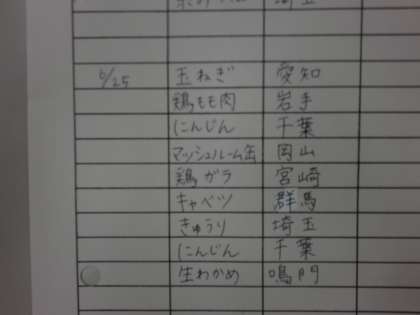 6/25 玉ねぎ 愛知
鶏もも肉 岩手
にんじん 千葉
マッシュルーム缶 岡山
鶏ガラ 宮崎
キャベツ 群馬
きゅうり 埼玉
にんじん 千葉
生わかめ 鳴門